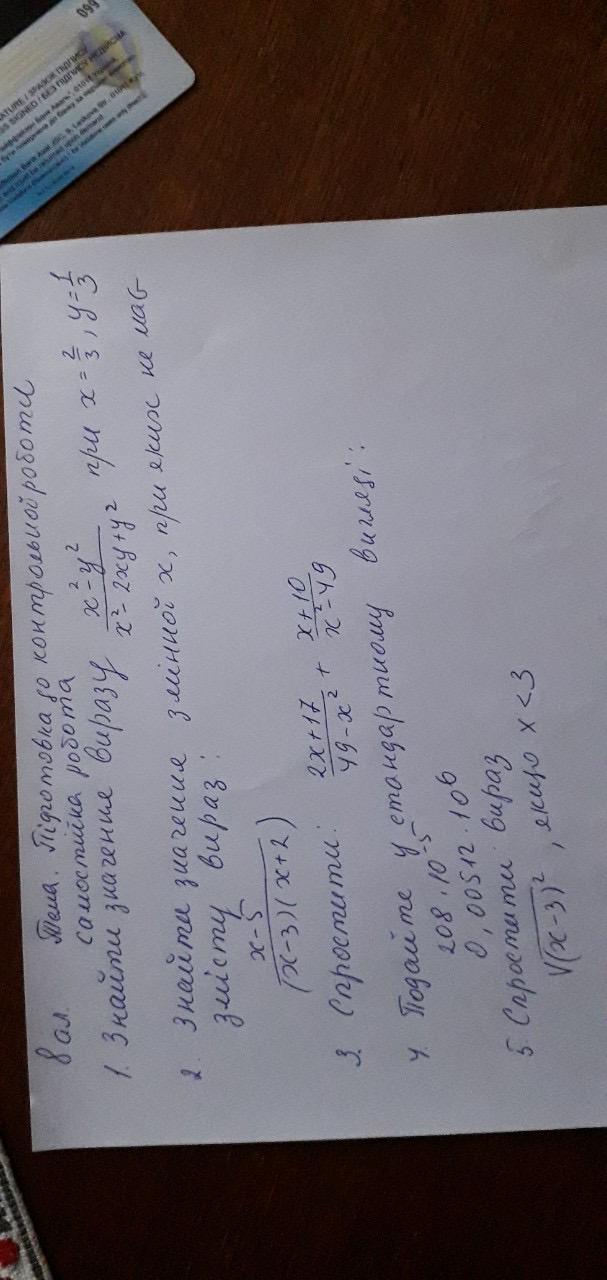 8 ал. Тема. Підготовка до контрольної роботи
самостійна робота
1. Знайти значення виразу \frac{x^2-y^2}{x^2-2xy+y^2} при x=\frac{2}{3}, y=\frac{1}{3}
2. Знайти значення змінної x, при яких не має
змісту вираз:
\frac{x-5}{(x-3)(x+2)}
3. Спростити: \frac{2x+17}{49-x^2} + \frac{x+10}{x^2-49}
4. Подайте у стандартному вигляді:
208·10^{-5}
0,00512·10^6
5. Спростити вираз
\sqrt{(x-3)^2}, якщо x<3
099